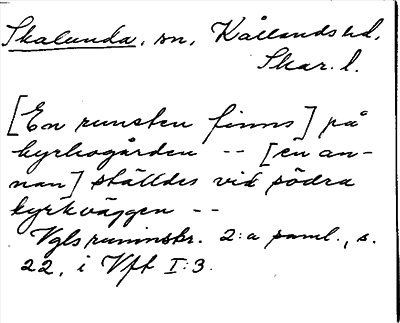 Skalunda, sn, Kållands hd,
Skar. l.
[En runsten finns] på
kyrkogården -- [en an-
nan] ställdes vid södra
kyrkväggen --
Vgls runinskr. 2:a saml., s.
22, i Vft I:3.